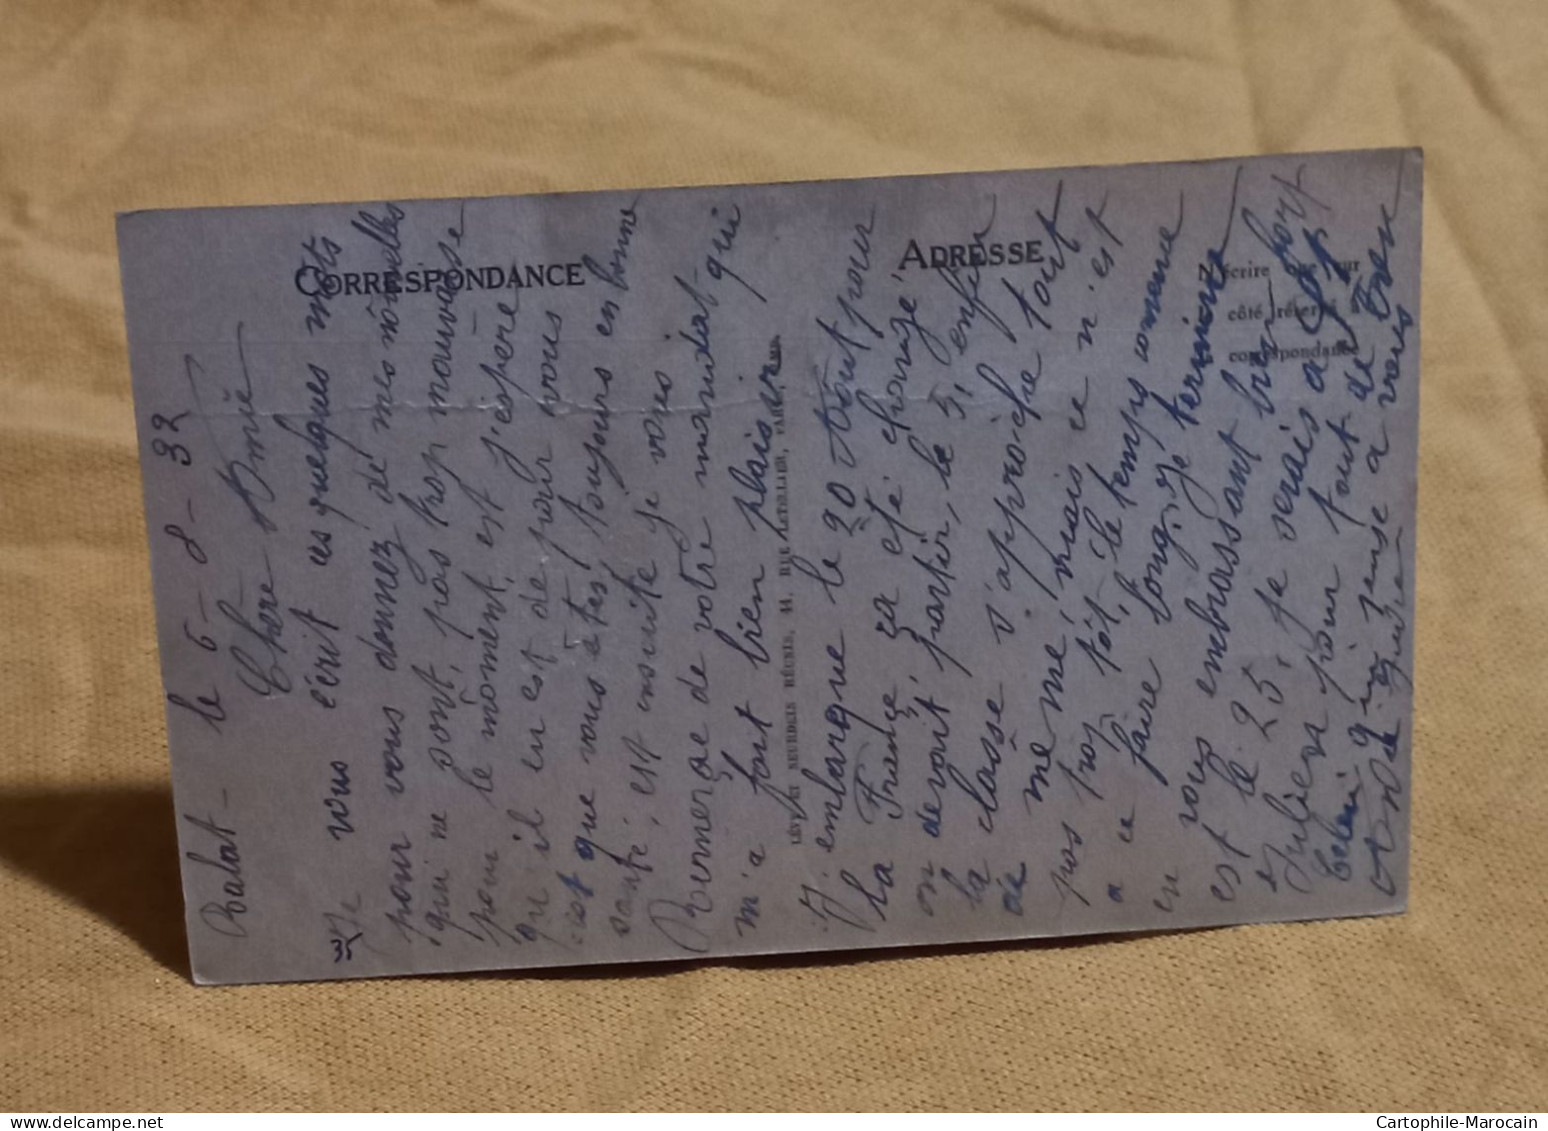 Rabat - le 6 - 8 - 32
Chère Amie
Je vous écrit ces quelques mots
pour vous donnez de mes nouvelles
qui ne sont pas trop mauvaise
pour le moment, est j'espère
qu'il en est de pour vous
est que vous êtes toujours en bonne
santé, est ensuite je vous
Remerçae de votre mandat qui
m'a fort bien plaisir
J. embarque le 20 Aout pour
la France ça eté changé
on devait partir, le 5, enfin
la classe s'approche tout
de me me, mais ce n'est
pas trop tôt le temps commence
a ce faire long, je termine
en vous embrassant bien fort
est le 25, je serais a
Juliers pour tout de bon
Celui qui pense a vous
André
CORRESPONDANCE
ADRESSE
N'écrire que sur
côté réservé à
correspondance
LÉVY ET NEURDEIN RÉUNIS, 44, RUE LETELLIER, PARIS
Cartophile-Marocain